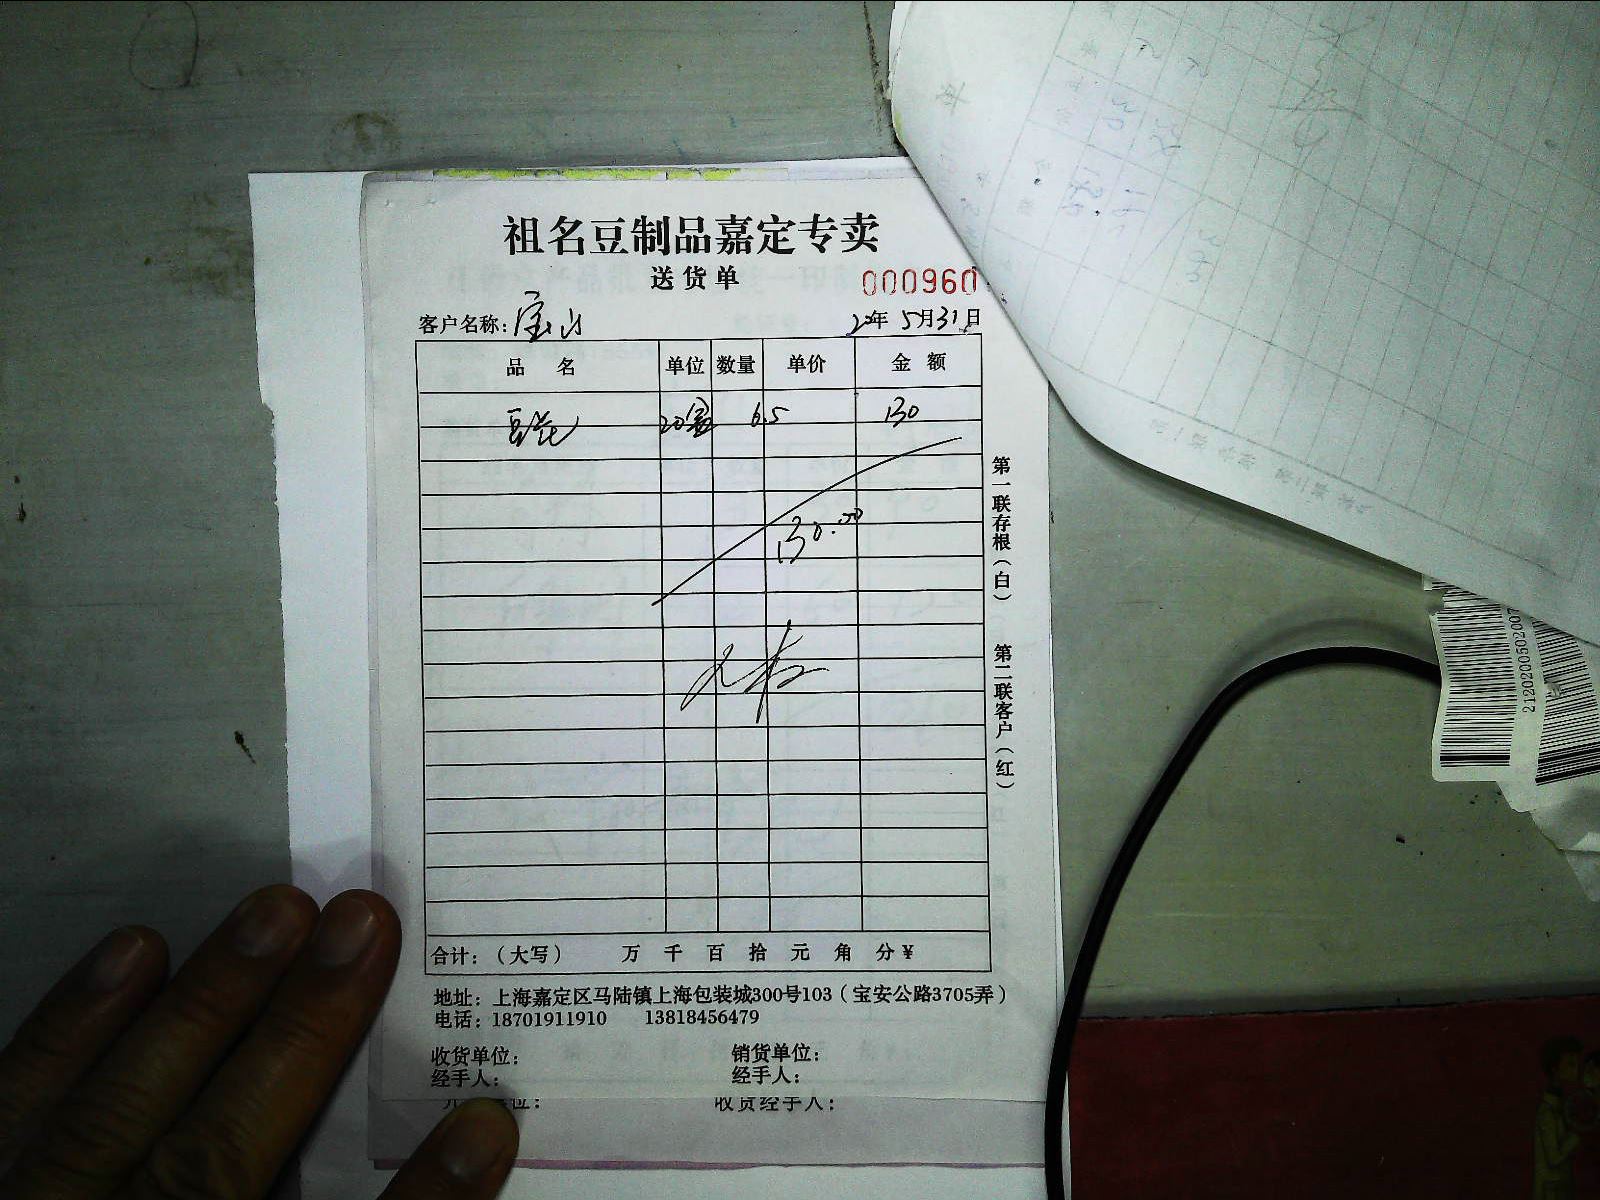 祖名豆制品嘉定专卖
送货单
000960
客户名称：宝山 20年5月31日
品 名 单位 数量 单价 金 额
豆花 20盒 6.5 130
130.00
第一联存根（白） 第二联客户（红）
合计：（大写） 万 千 百 拾 元 角 分￥
地址：上海嘉定区马陆镇上海包装城300号103（宝安公路3705弄）
电话：18701911910 13818456479
收货单位： 销货单位：
经手人： 经手人：
收货经手人：